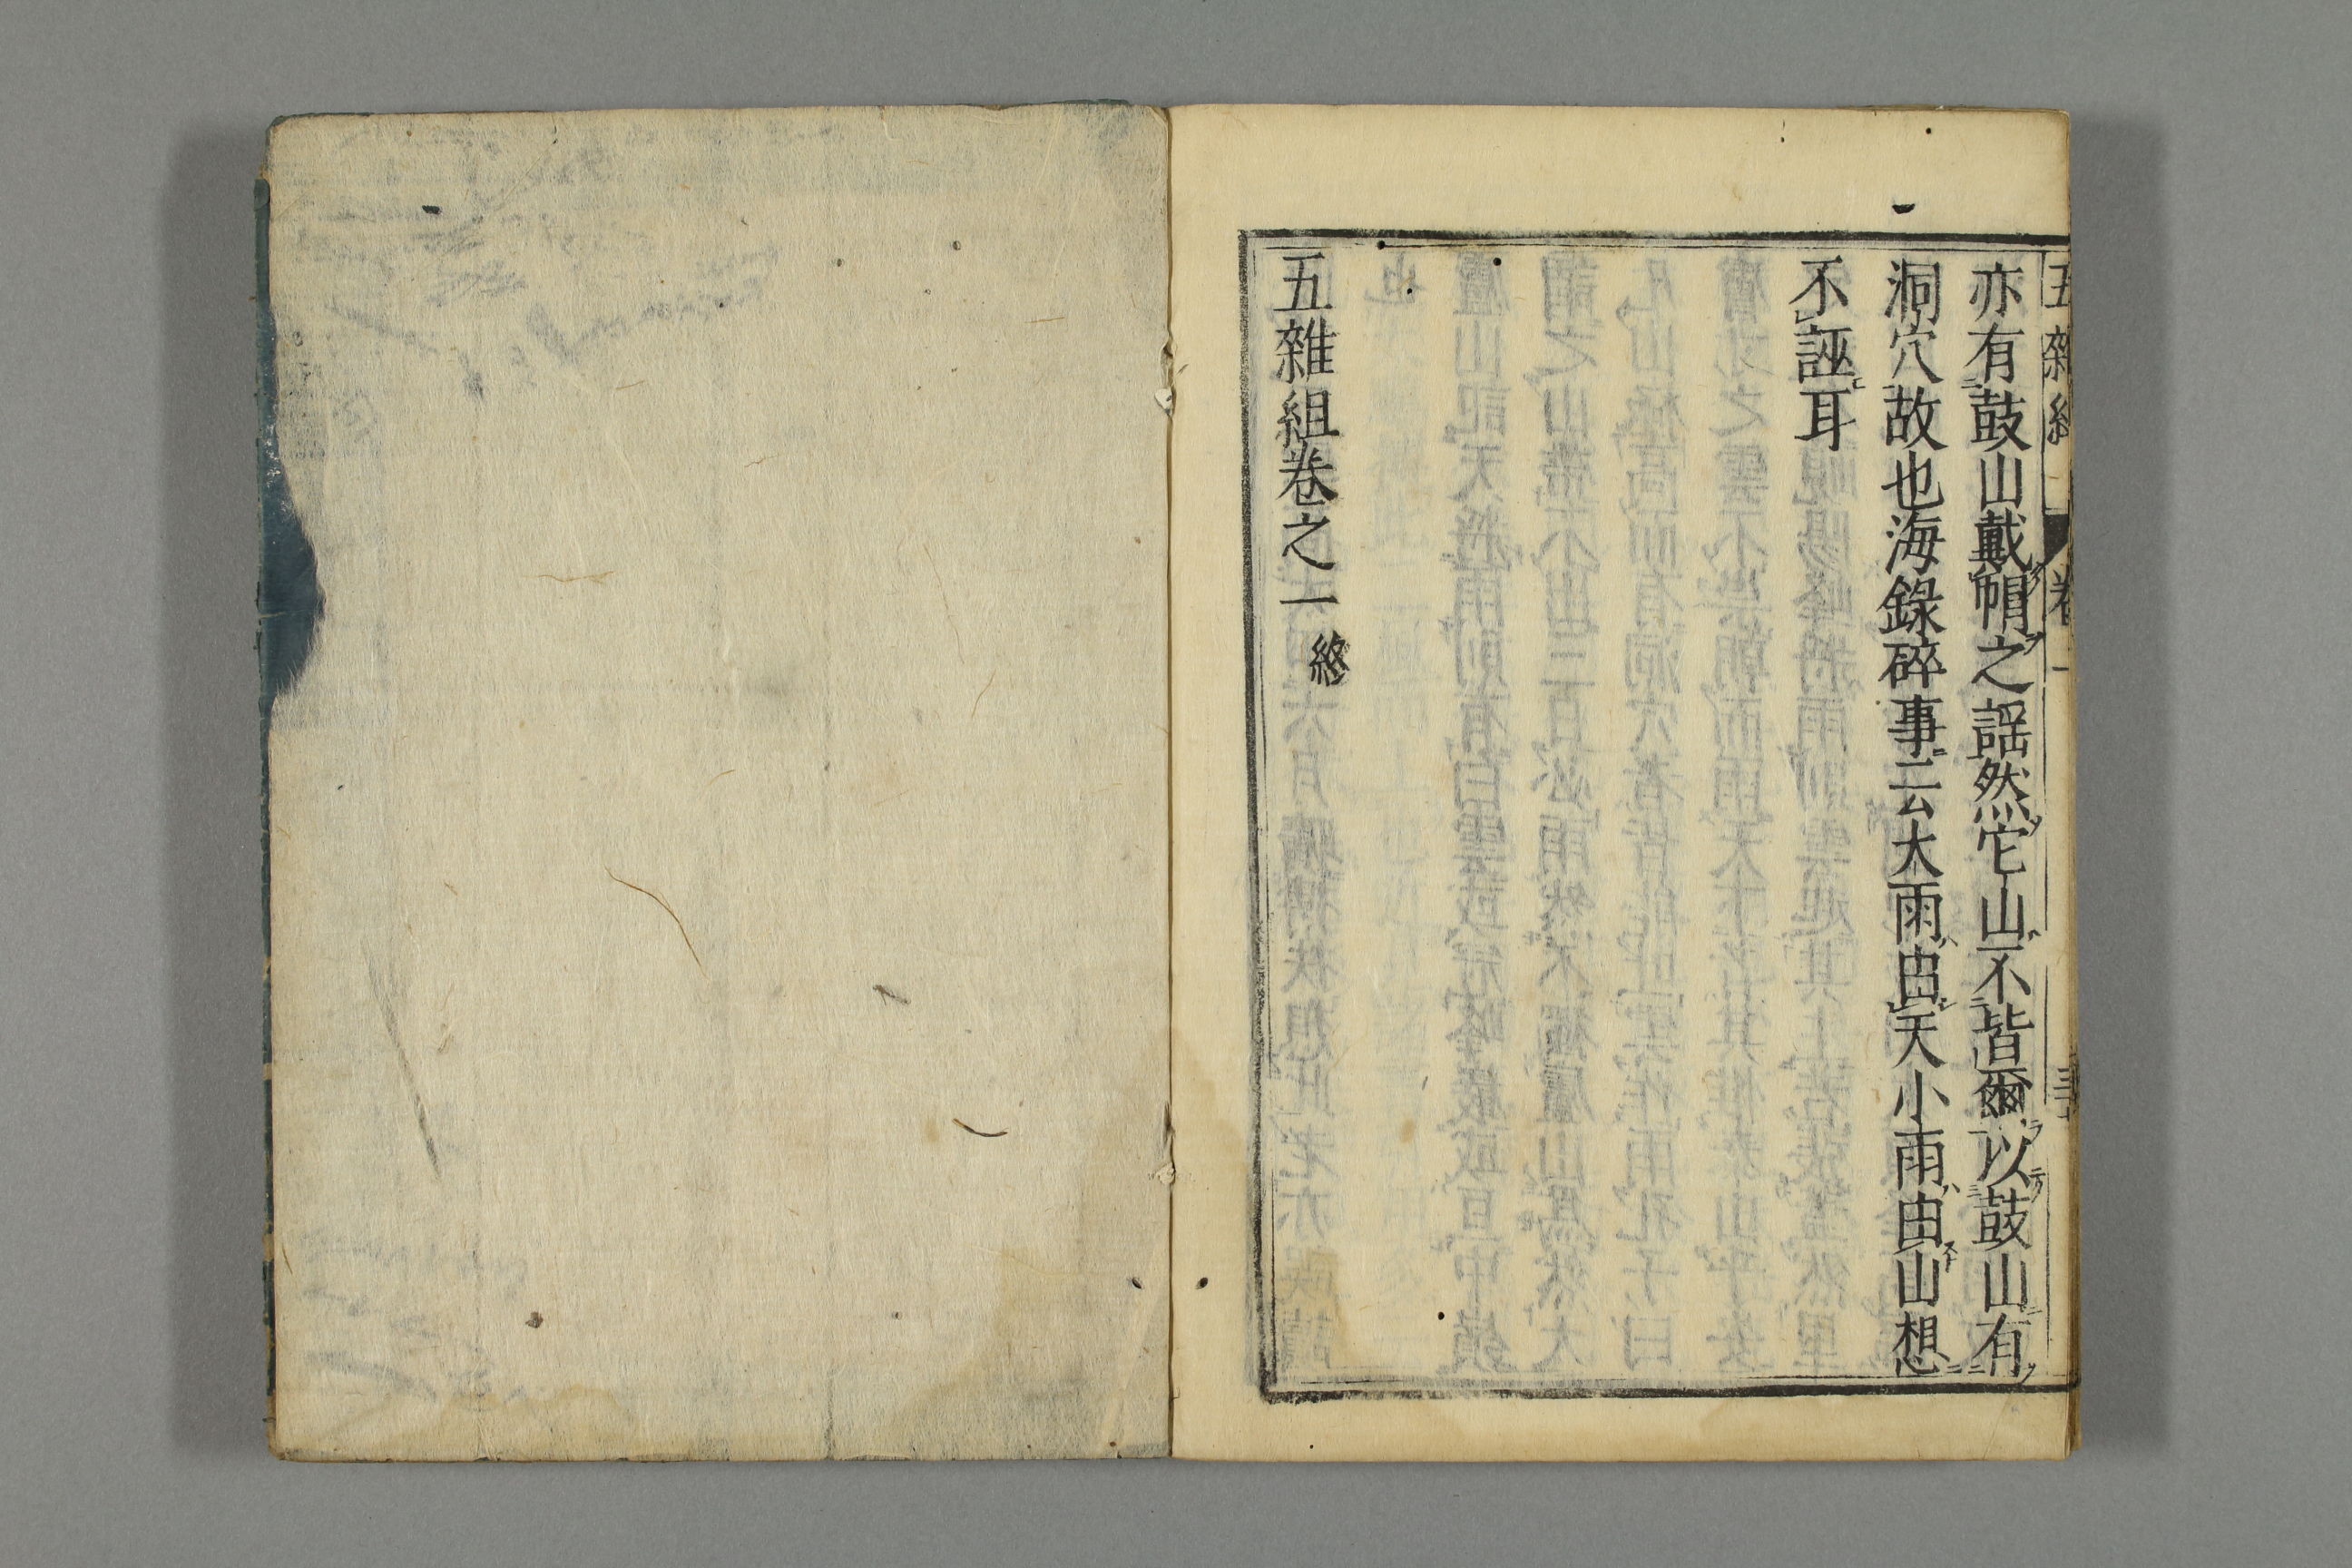 亦有鼓山戴帽之謡然它山不皆爾以鼓山有
洞穴故也海錄碎事云大雨由天小雨由山想
不誣耳
五雜組卷之一 終